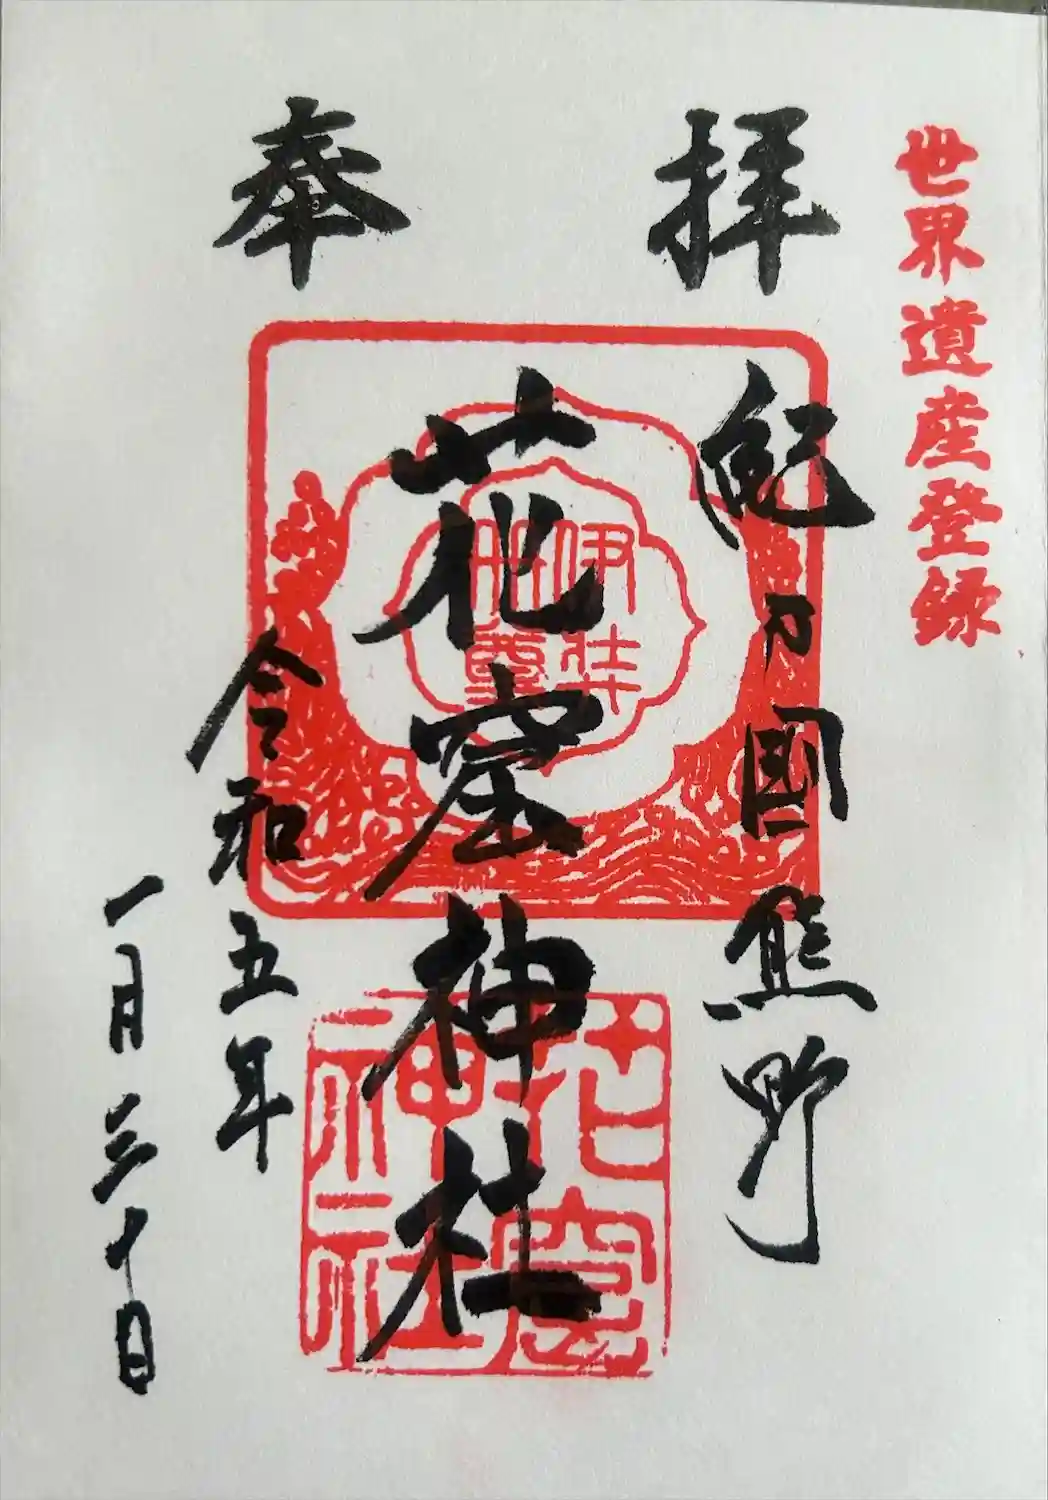 世界遺産登録
奉拝
紀乃國熊野
花窟神社
令和五年
一月三十日
伊弉冊尊
花窟神社